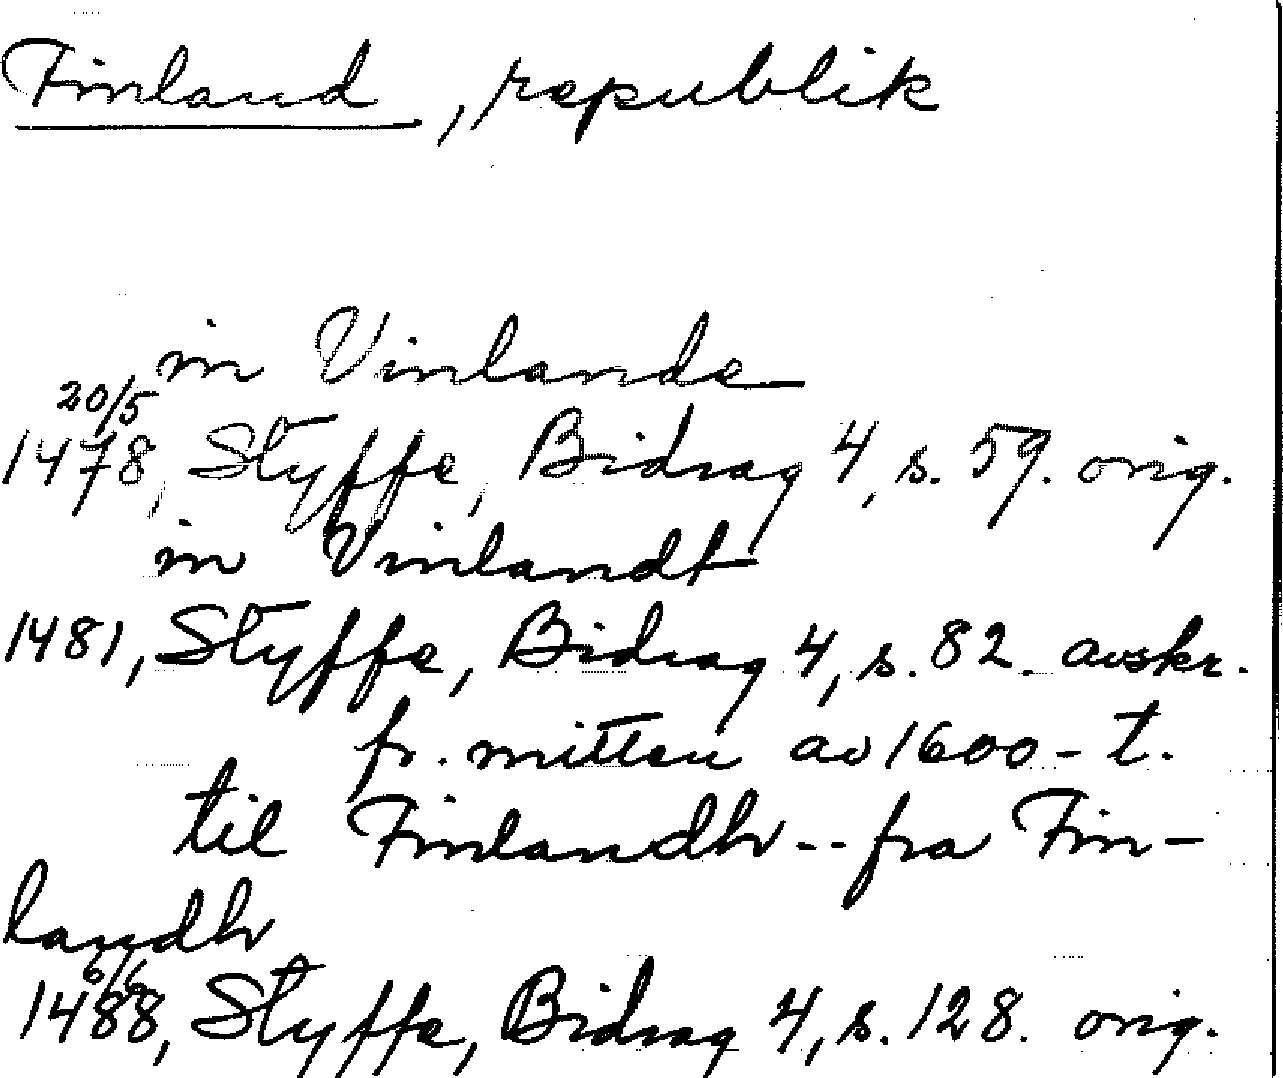 Finland, republik
in Vinlande
20/5
1478, Styffe, Bidrag 4, s. 59. orig.
in Vinlandt
1481, Styffe, Bidrag 4, s. 82. avskr.
fr. mitten av 1600-t.
til Finlandh -- fra Fin-
landh
6/6
1488, Styffe, Bidrag 4, s. 128. orig.